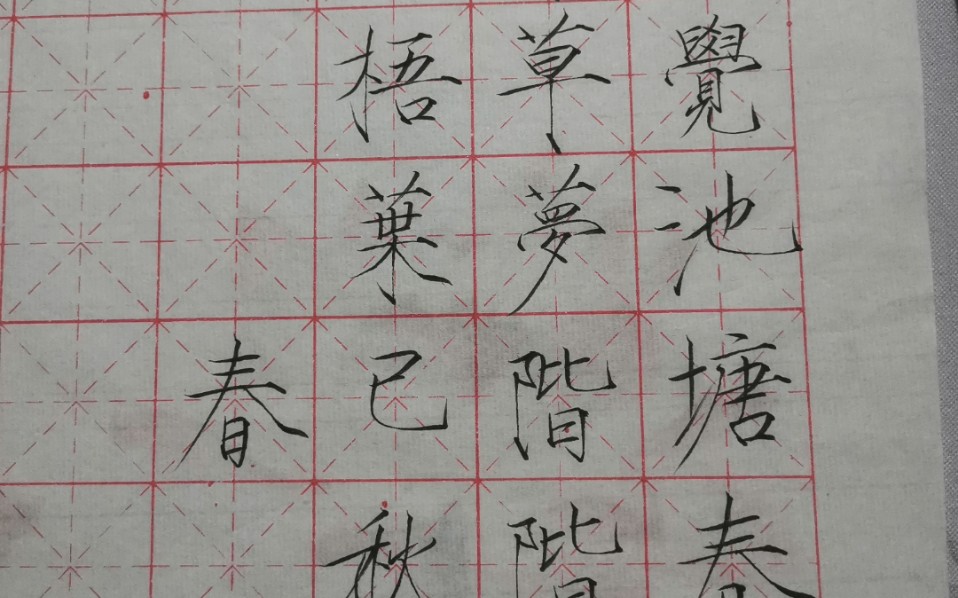 覺池塘春
草夢階階
梧葉已秋
春